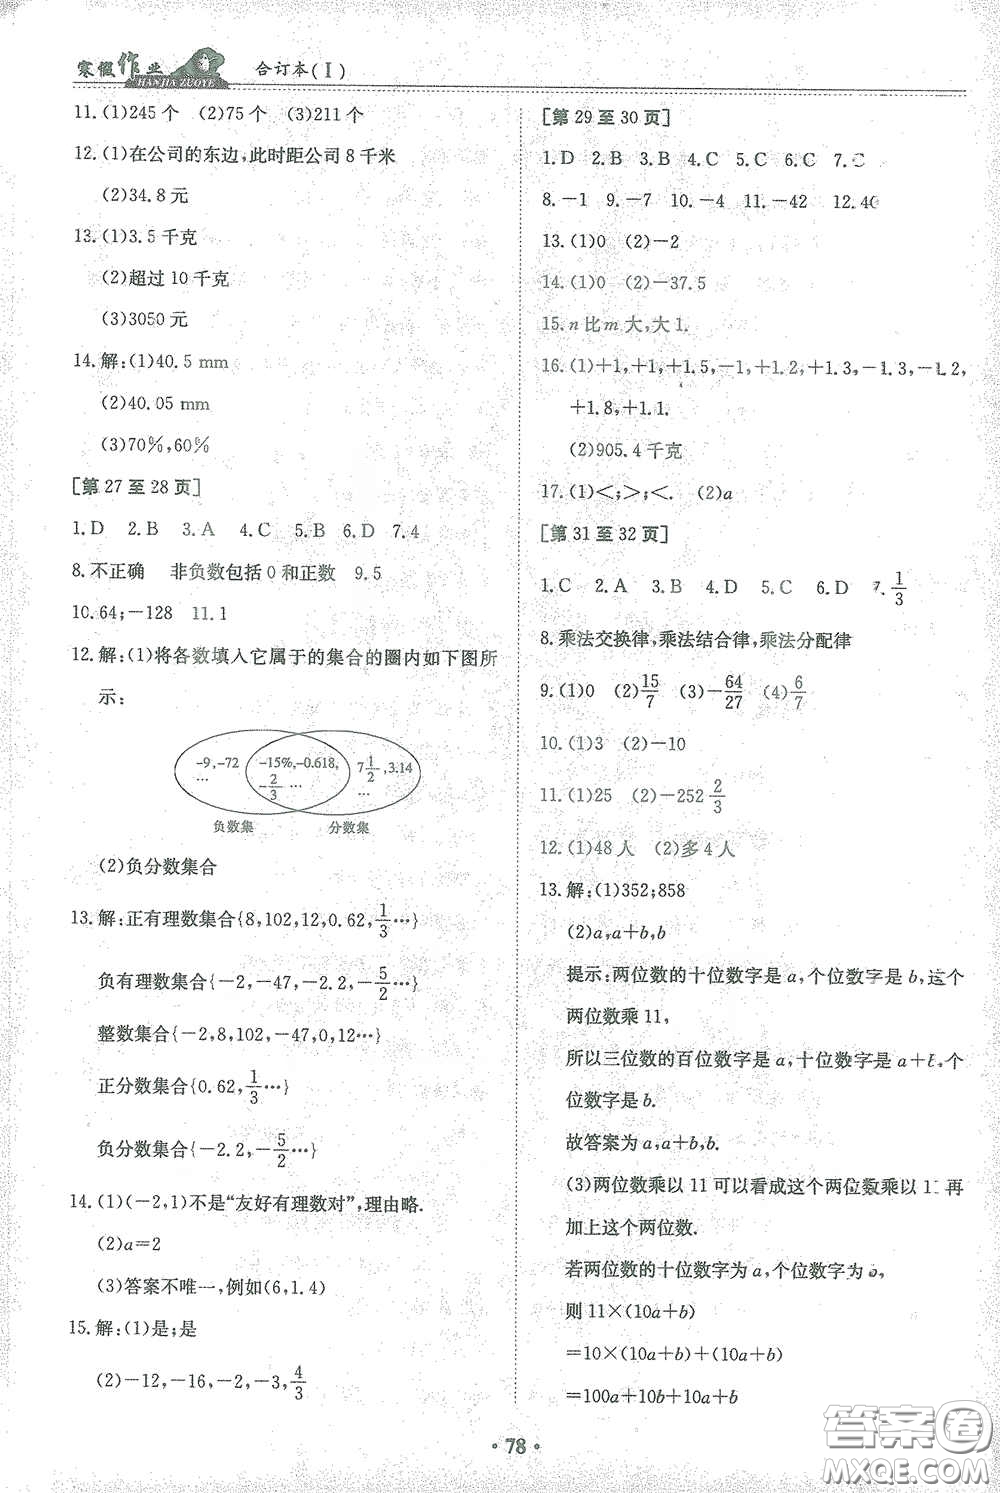 寒假作业 HANJIA ZUOYE 合订本(Ⅰ)
11.(1)245个 (2)75个 (3)211个
12.(1)在公司的东边,此时距公司8千米
(2)34.8元
13.(1)3.5千克
(2)超过10千克
(3)3050元
14.解:(1)40.5 mm
(2)40.05 mm
(3)70%,60%
[第27至28页]
1.D 2.B 3.A 4.C 5.B 6.D 7.4
8.不正确 非负数包括0和正数 9.5
10.64;-128 11.1
12.解:(1)将各数填入它属于的集合的圈内如下图所
示:
-9,-72 … -15%,-0.618, -2/3 … 7 1/2,3.14 …
负数集 分数集
(2)负分数集合
13.解:正有理数集合{8,102,12,0.62,1/3…}
负有理数集合{-2,-47,-2.2,-5/2…}
整数集合{-2,8,102,-47,0,12…}
正分数集合{0.62,1/3…}
负分数集合{-2.2,-5/2…}
14.(1)(-2,1)不是“友好有理数对”,理由略.
(2)a=2
(3)答案不唯一,例如(6,1.4)
15.解:(1)是;是
(2)-12,-16,-2,-3,4/3
[第29至30页]
1.D 2.B 3.B 4.C 5.C 6.C 7.C
8.-1 9.-7 10.-4 11.-42 12.40
13.(1)0 (2)-2
14.(1)0 (2)-37.5
15.n比m大,大1.
16.(1)+1,+1,+1.5,-1,+1.2,+1.3,-1.3,-1.2,
+1.8,+1.1.
(2)905.4千克
17.(1)<;>;<. (2)a
[第31至32页]
1.C 2.A 3.B 4.D 5.C 6.D 7.1/3
8.乘法交换律,乘法结合律,乘法分配律
9.(1)0 (2)15/7 (3)-64/27 (4)6/7
10.(1)3 (2)-10
11.(1)25 (2)-252 2/3
12.(1)48人 (2)多4人
13.解:(1)352;858
(2)a,a+b,b
提示:两位数的十位数字是a,个位数字是b,这个
两位数乘11,
所以三位数的百位数字是a,十位数字是a+b,个
位数字是b.
故答案为a,a+b,b.
(3)两位数乘以11可以看成这个两位数乘以1 再
加上这个两位数.
若两位数的十位数字为a,个位数字为b,
则11×(10a+b)
=10×(10a+b)+(10a+b)
=100a+10b+10a+b
·78·
答案圈
MXQE.COM